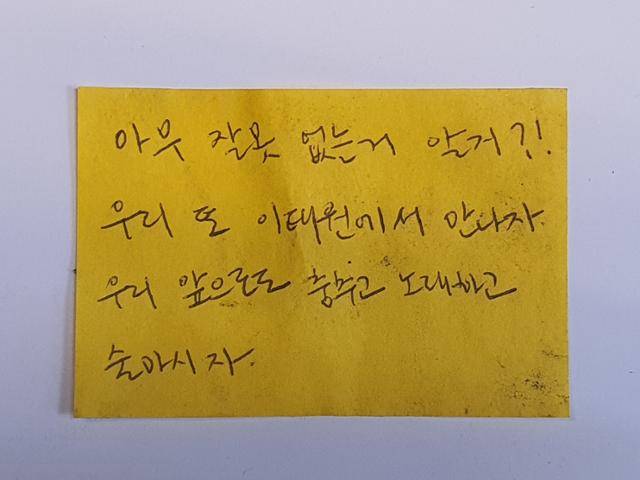 아무 잘못 없는거 알지?!
우리 또 이태원에서 만나자.
우리 앞으로도 춤추고 노래하고
술마시자.